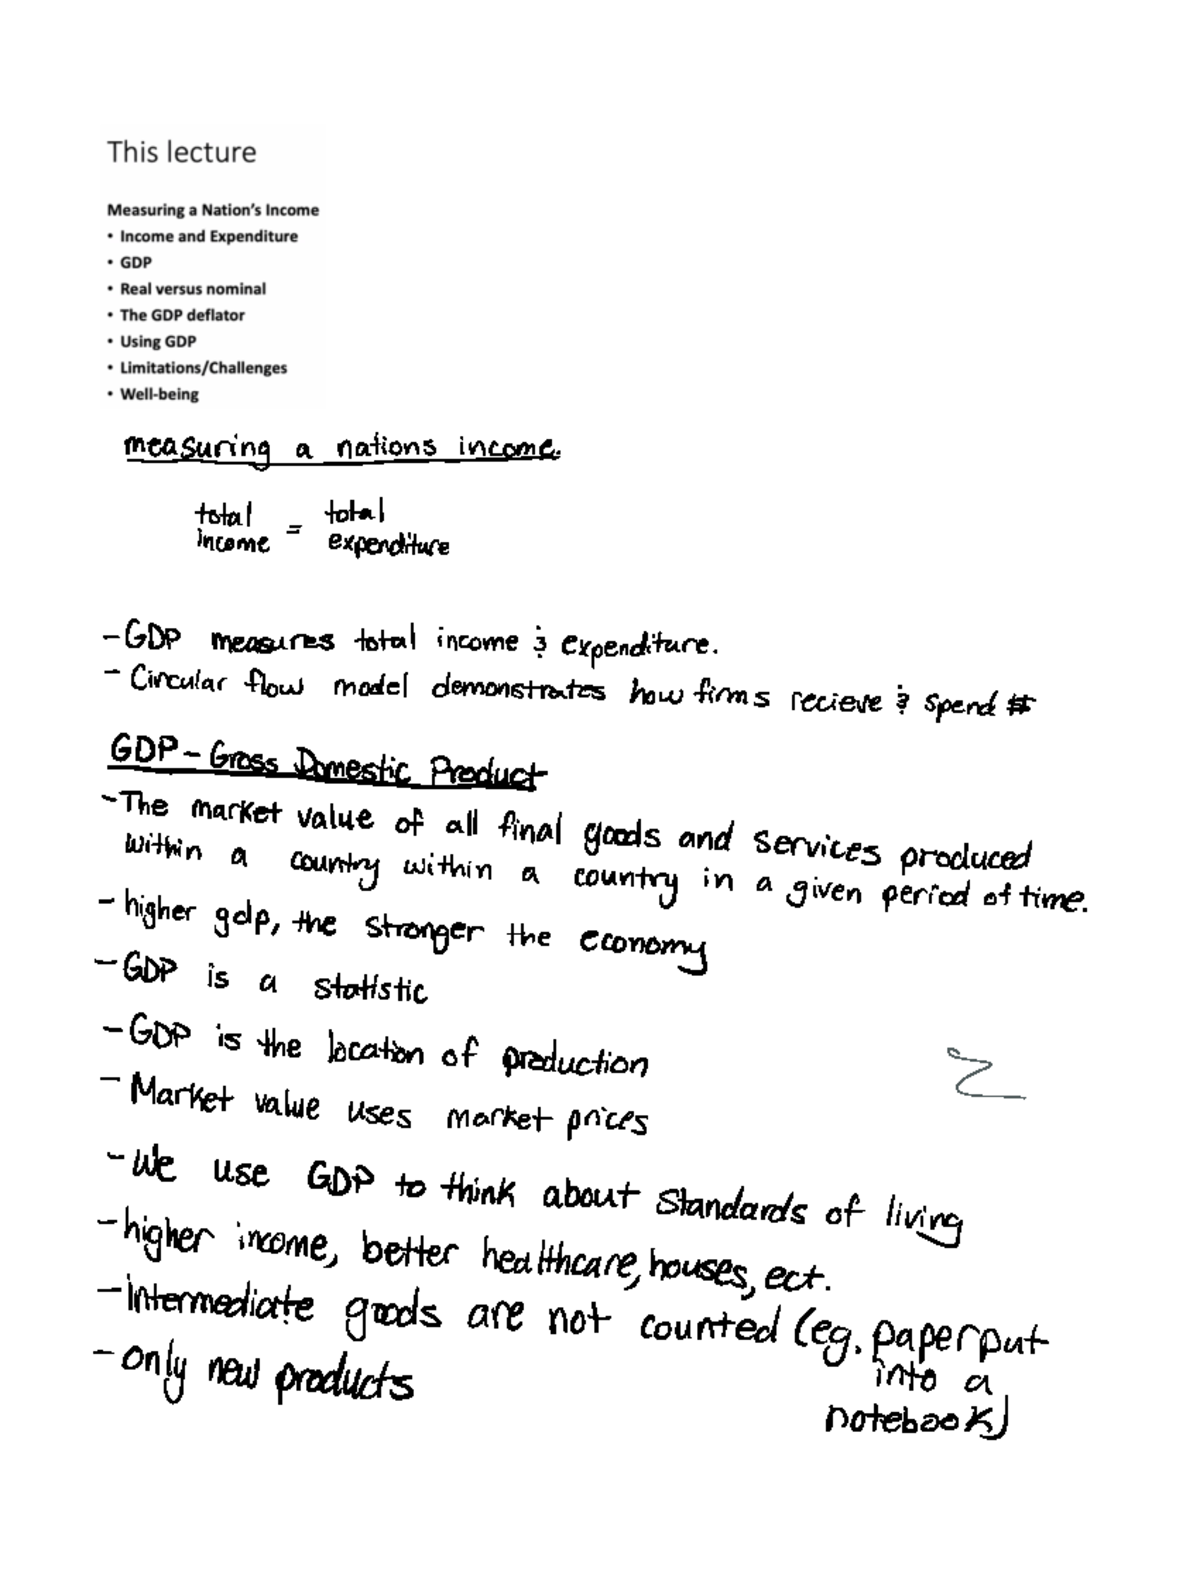 This lecture
Measuring a Nation's Income
• Income and Expenditure
• GDP
• Real versus nominal
• The GDP deflator
• Using GDP
• Limitations/Challenges
• Well-being
measuring a nations income.
total = total
income expenditure
- GDP measures total income & expenditure.
- Circular flow model demonstrates how firms recieve & spend $
GDP - Gross Domestic Product
- The market value of all final goods and services produced
within a country within a country in a given period of time.
- higher gdp, the stronger the economy
- GDP is a statistic
- GDP is the location of production
- Market value uses market prices
- We use GDP to think about standards of living
- higher income, better healthcare, houses, ect.
- Intermediate goods are not counted (eg. paper put
into a
notebook)
- only new products